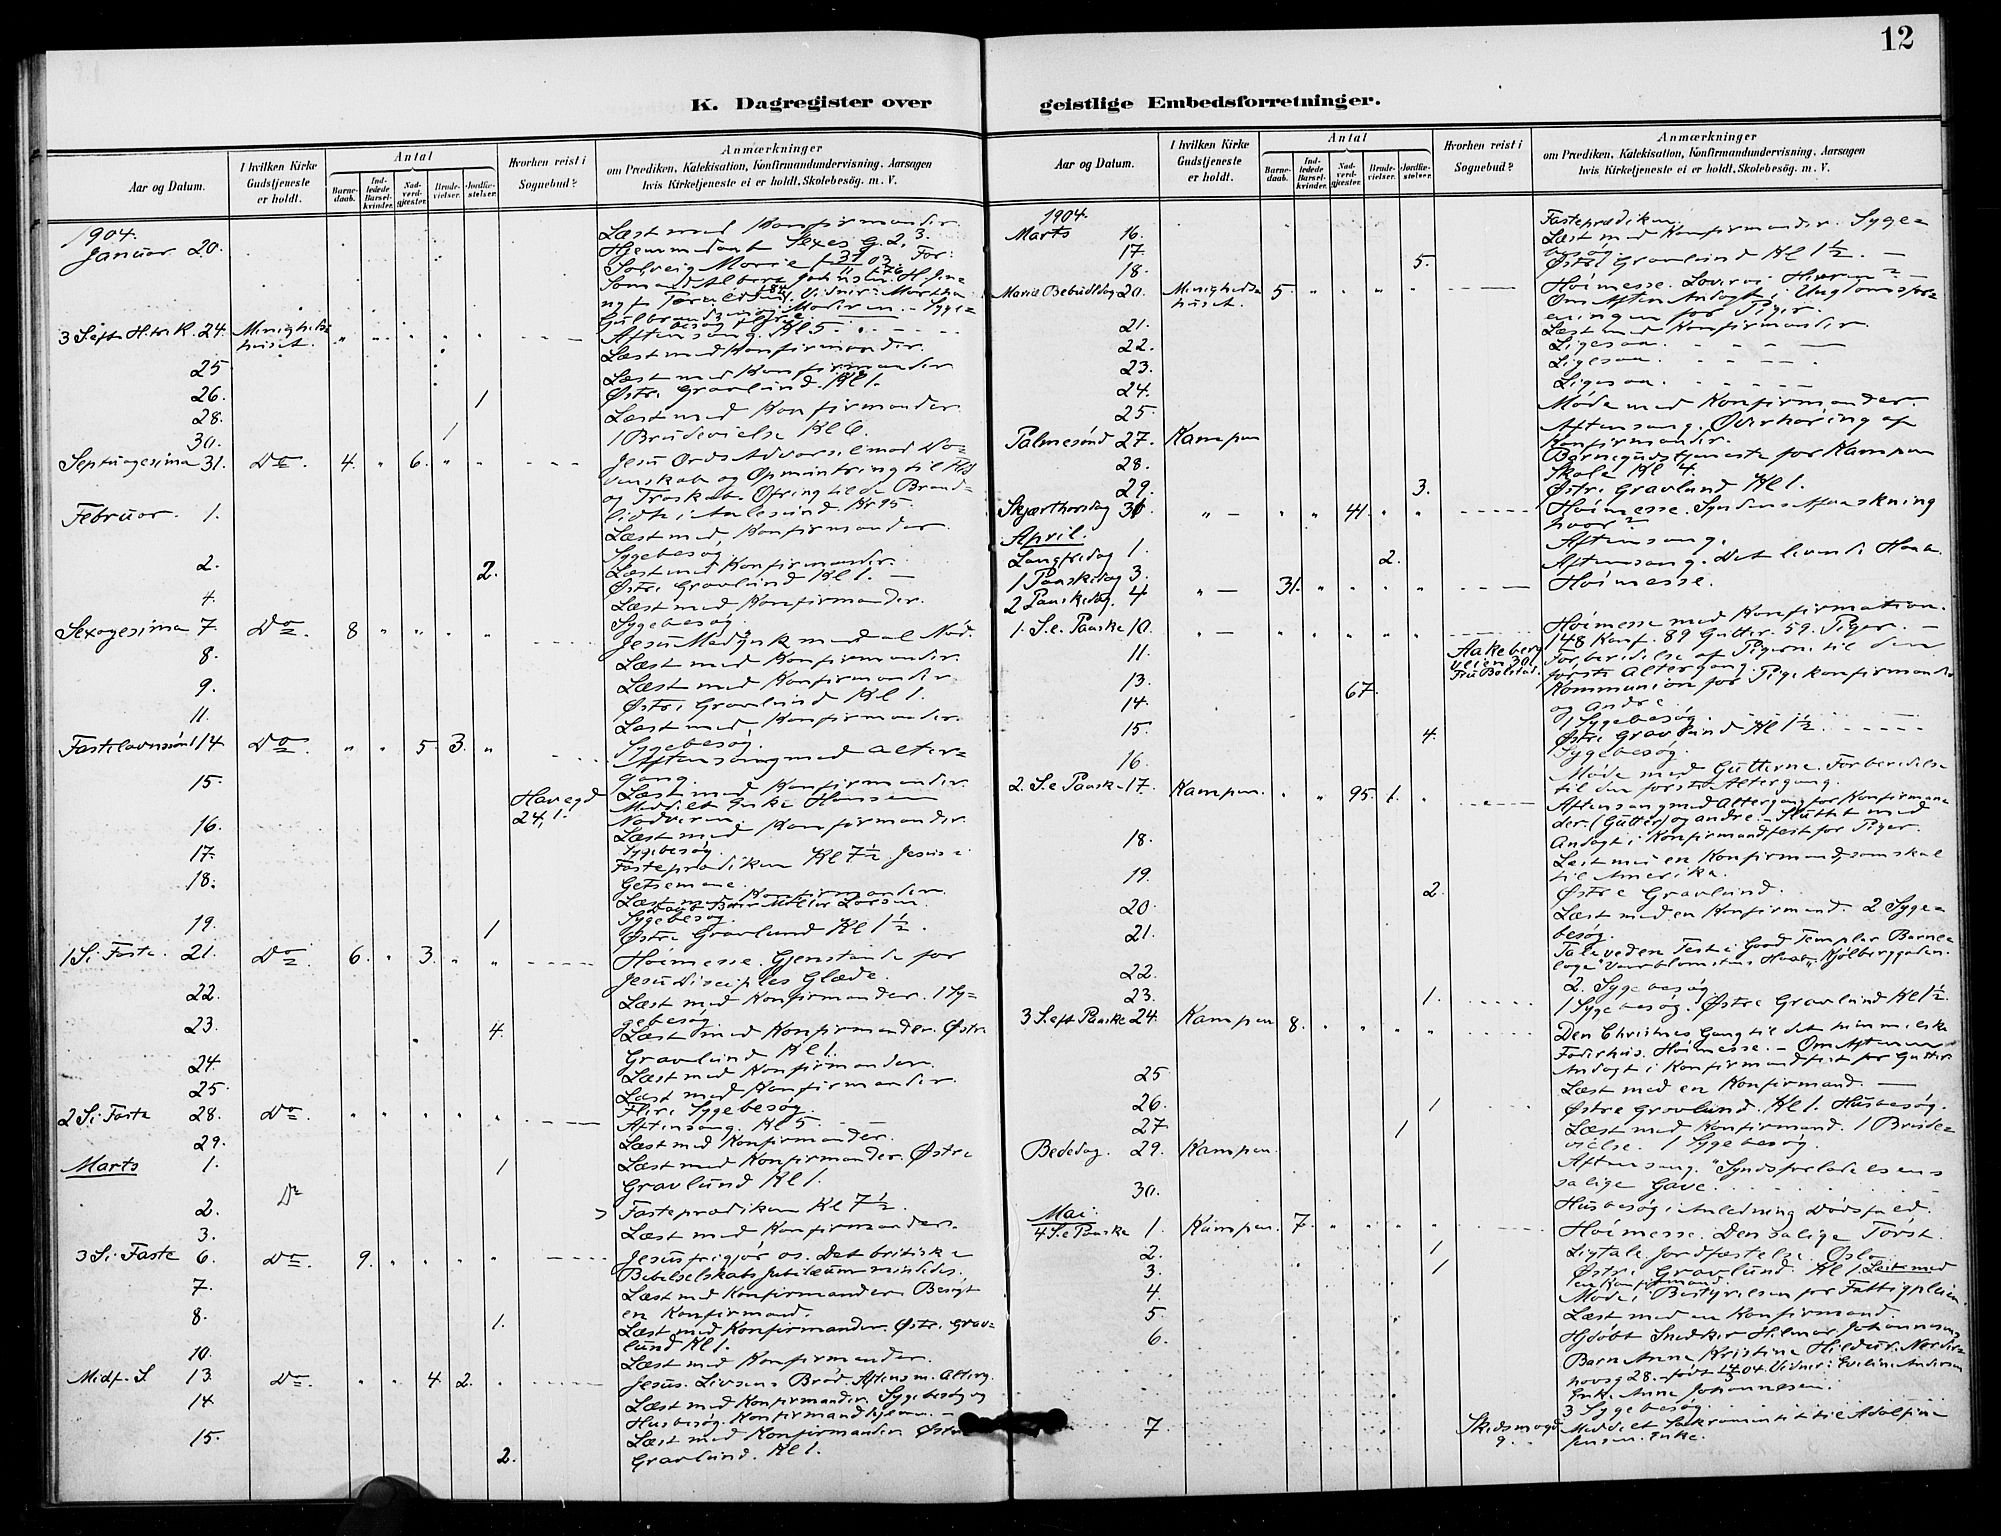 12
K. Dagregister over
geistlige Embedsforretninger.
Aar og Datum.
I hvilken Kirke Gudstjeneste er holdt.
Antal
Barnedaab.
Indledede Barselkvinder.
Nadverdgjæster.
Brudevielser.
Jordfæstelser.
Hvorhen reist i Sognebud?
Anmærkninger
om Prædiken, Katekisation, Konfirmandundervisning, Aarsagen
hvis Kirketjeneste ei er holdt, Skolebesøg. m. V.
1904.
Januar 20. Læst med Konfirmander.
Hjemmedøbt
Solveig Marie
3 S. eft. H. tr. K. 24. Menighedshuset. Aftensang. Kl 5.
Læst med Konfirmander.
25 Læst med Konfirmander
26. 1 Østre Gravlund. Kl 1.
28. Læst med Konfirmander.
30. 1 1 Brudevielse Kl 6.
Septuagesima 31. Do. 4. " 6. " " Jesu Ords Advarsel mod
og Opmuntring til
og Troskab. Ofring til de Brand-
lidte i Aalesund Kr 95.
Februar. 1. Læst med Konfirmander.
Sygebesøg.
2. 2. Læst med Konfirmander.
Østre Gravlund Kl 1.
4. Læst med Konfirmander.
Sygebesøg.
Sexagesima 7. Do. 8 " " " "
8. Læst med Konfirmander.
9. Læst med Konfirmander.
Østre Gravlund Kl 1.
11. Læst med Konfirmander.
Sygebesøg.
Fastelavnssønd 14 Do. " " 5. 3. " Aftensang med Alter-
gang.
15. Havegd 24, 1. Læst med Konfirmander.
Meddelt Enke Hansen
Nadveren.
16. Læst med Konfirmander.
Sygebesøg.
17. Fasteprædiken Kl 7½ Jesus i
Getsemane.
18. Læst med Konfirmander.
Sygebesøg.
19. 1 Østre Gravlund Kl 1½.
1 S. i Faste. 21. Do. 6. " 3. " " Høimesse. Gjenstande for
Jesu Disciples Glæde.
22. Læst med Konfirmander. 1 Sy-
gebesøg
23. 4. Læst med Konfirmander. Østre
Gravlund Kl 1.
24. Læst med Konfirmander.
25. Læst med Konfirmander.
Flere Sygebesøg.
2 S. i Faste 28. Do. " " " " " Aftensang. Kl 5
29. Læst med Konfirmander.
Marts 1. 1 Læst med Konfirmander. Østre
Gravlund Kl 1.
2. Do Fasteprædiken Kl 7½.
3. Læst med Konfirmander.
3 S. i Faste 6. Do. 9. " " " " Jesus frigjør os. Det britiske
Bibelselskabs Jubilæum mindedes.
7. Læst med Konfirmander. Besøgt
en Konfirmand.
8. 1. Læst med Konfirmander. Østre Grav-
lund Kl 1.
10. Læst med Konfirmander.
Midf. S. 13. Do. " " 4. 2. " Jesus. Livsens Brød. Aftens m. Alterg.
14. Læst med Konfirmander. Sygebesøg og
Husbesøg.
15. 2. Læst med Konfirmander. Østre
Gravlund. Kl 1.
Aar og Datum.
I hvilken Kirke Gudstjeneste er holdt.
Antal
Barnedaab.
Indledede Barselkvinder.
Nadverdgjæster.
Brudevielser.
Jordfæstelser.
Hvorhen reist i Sognebud?
Anmærkninger
om Prædiken, Katekisation, Konfirmandundervisning, Aarsagen
hvis Kirketjeneste ei er holdt, Skolebesøg. m. V.
1904.
Marts 16. Fasteprædiken.
17. Læst med Konfirmander. Syge-
besøg.
18. 5. Østre Gravlund Kl 1½.
Mariæ Bebudelsdag 20. Menighedshuset. 5. " " " " Høimesse.
Om Aften Andagt i Ungdomsfor-
eningen for Piger.
21. Læst med Konfirmander.
22. Ligesaa.
23. Ligesaa.
24. Ligesaa.
25. Møde med Konfirmander.
Palmesønd 27. Kampen Aftensang. Overhøring af
Konfirmander.
28. Barnegudstjeneste for Kampen
Skole Kl 4.
29. 3. Østre Gravlund Kl 1.
Skjærthorsdag 31 " " " 41. " " Høimesse. Syndens
hvor?
April.
Langfredag 1. Aftensang.
1 Paaskedag 3. 2. Aftensang. Det levende Haab.
2 Paaskedag. 4 " 31. " " " " Høimesse.
1. S. e. Paaske 10. " " " " " " Høimesse med Konfirmation.
148 Konf. 89 Gutter. 59. Piger.
11. Aakebergveien 30 Fru Bolstad. Forberedelse af Pigerne til den
første Altergang.
13. 67. Kommunion for Pigekonfirmander
og Andre.
14. 1 Sygebesøg.
15. 4. Østre Gravlund Kl 1½.
Sygebesøg.
16. Møde med Gutterne. Forberedelse
til den første Altergang.
2. S. e Paaske 17. Kampen. " " 95. 1. " Aftensang med Altergang for Konfirman-
der. (Gutter) og andre. Sluttet med
Andagt i Konfirmandfest for Piger.
18. Læst med en Konfirmand, som skal
til Amerika.
19. 2. Østre Gravlund.
20. Læst med en Konfirmand. 2 Syge-
besøg.
21. Tale ved en Fest i Good Templar Barne-
loge "Vaarblomstens Haab" Kjølberggaden.
22. 2. Sygebesøg
23. 1. 1 Sygebesøg. Østre Gravlund Kl 1½.
3 S. eft Paaske 24. Kampen 8. " " " " Den Christnes Gang til det himmelske
Faderhus. Høimesse. – Om Aftenen
Andagt i Konfirmandfest for Gutter.
25 Læst med en Konfirmand.
26. 1 Østre Gravlund. Kl 1. Husbesøg.
27 1 Læst med Konfirmand. 1 Brude-
vielse. 1 Sygebesøg.
Bededag. 29. Kampen. Aftensang. "Syndsforladelsens
salige Gave.
30. Husbesøg i Anledning Dødsfald.
Mai.
4 S. e Paaske 1. Kampen. 7. " " " " Høimesse. Den salige Tørst.
2. 1 Ligtale. Jordfæstelse. Oslo.
3. 1 Østre Gravlund. Kl 1. Læst med
en Konfirmand.
4. Møde i Bestyrelsen for Fattigpleien.
5. Læst med en Konfirmand
6. Hjdøbt Snedker Hilmar Johannesens
Barn Anna Kristine Hildur.
28. født 14/3 04. Vidner: Eveline Andersen
Enke Anne Johannesen.
3 Sygebesøg.
7 9. Meddelt Sakramentet til Adolfine
Jensen. Enke.